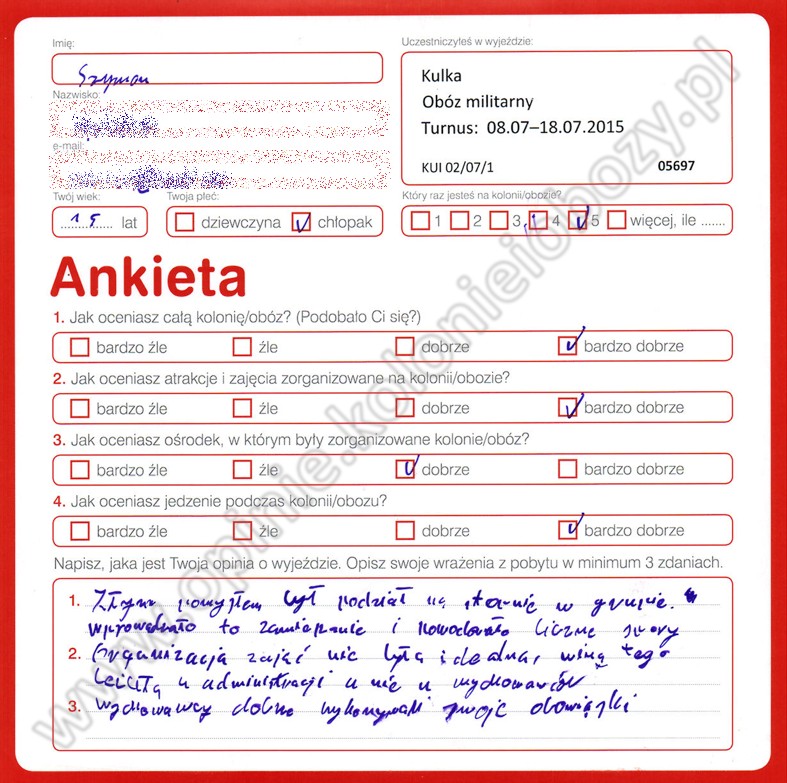 Imię:
Szymon
Nazwisko:
e-mail:
Twój wiek:
15 lat
Twoja płeć:
dziewczyna chłopak
Uczestniczyłeś w wyjeździe:
Kulka
Obóz militarny
Turnus: 08.07–18.07.2015
KUI 02/07/1 05697
Który raz jesteś na kolonii/obozie?
1 2 3 4 5 więcej, ile .......
Ankieta
1. Jak oceniasz całą kolonię/obóz? (Podobało Ci się?)
bardzo źle źle dobrze bardzo dobrze
2. Jak oceniasz atrakcje i zajęcia zorganizowane na kolonii/obozie?
bardzo źle źle dobrze bardzo dobrze
3. Jak oceniasz ośrodek, w którym były zorganizowane kolonie/obóz?
bardzo źle źle dobrze bardzo dobrze
4. Jak oceniasz jedzenie podczas kolonii/obozu?
bardzo źle źle dobrze bardzo dobrze
Napisz, jaka jest Twoja opinia o wyjeździe. Opisz swoje wrażenia z pobytu w minimum 3 zdaniach.
1. Złym pomysłem był podział na w grupie.
wprowadzało to zamieszanie i powodowało liczne spory
2. Organizacja zajęć nie była idealna, wina tego
leżała u administracji a nie u wychowawców
3. Wychowawcy dobrze wykonywali swoje obowiązki
www.opinie.kolonieiobozy.pl